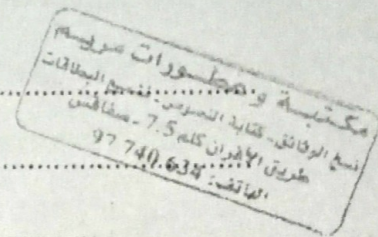 مكتبة و مطبوعات مريم
نسخ الوثائق - كتابة النصوص - تسفير البطاقات
طريق الأفران كلم 7.5 - صفاقس
الهاتف: 97 740 634